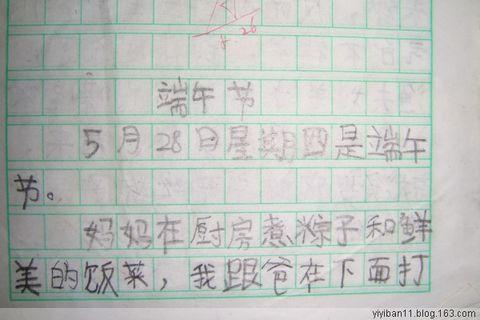 端午节
5月28日星期四是端午
节。
妈妈在厨房煮粽子和鲜
美的饭菜，我跟爸在下面打
yiyiban11.blog.163.com